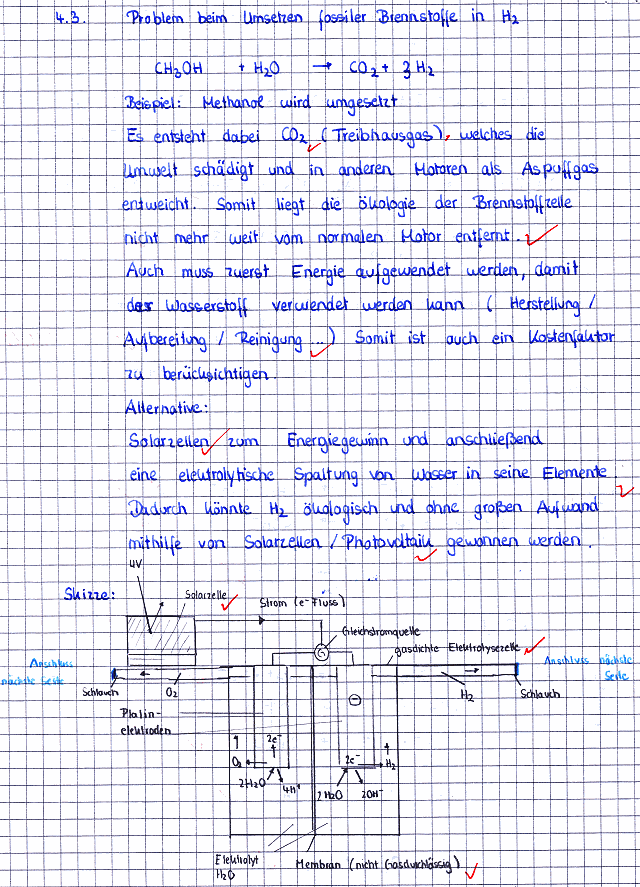 4.3. Problem beim Umsetzen fossiler Brennstoffe in H₂
CH₃OH + H₂O → CO₂ + 3H₂
Beispiel: Methanol wird umgesetzt
Es entsteht dabei CO₂ (Treibhausgas), welches die
Umwelt schädigt und in anderen Motoren als Aspuffgas
entweicht. Somit liegt die ökologie der Brennstoffzelle
nicht mehr weit vom normalen Motor entfernt.
Auch muss zuerst Energie aufgewendet werden, damit
der Wasserstoff verwendet werden kann ( Herstellung /
Aufbereitung / Reinigung ...) Somit ist auch ein Kostenfaktor
zu berücksichtigen.
Alternative:
Solarzellen zum Energiegewinn und anschließend
eine elektrolytische Spaltung von Wasser in seine Elemente.
Dadurch könnte H₂ ökologisch und ohne großen Aufwand
mithilfe von Solarzellen / Photovoltaik gewonnen werden.
Skizze:
UV
Solarzelle
Strom (e⁻Fluss)
Gleichstromquelle
G
gasdichte Elektrolysezelle
Anschluss
nächste Seite
Anschluss nächste
Seite
Schlauch
O₂
H₂
Schlauch
Platin-
elektroden
⊖
O₂
2e⁻
2e⁻
H₂
2H₂O
4H⁺
2H₂O
2OH⁻
Elektrolyt
H₂O
Membran (nicht Gasdurchlässig)